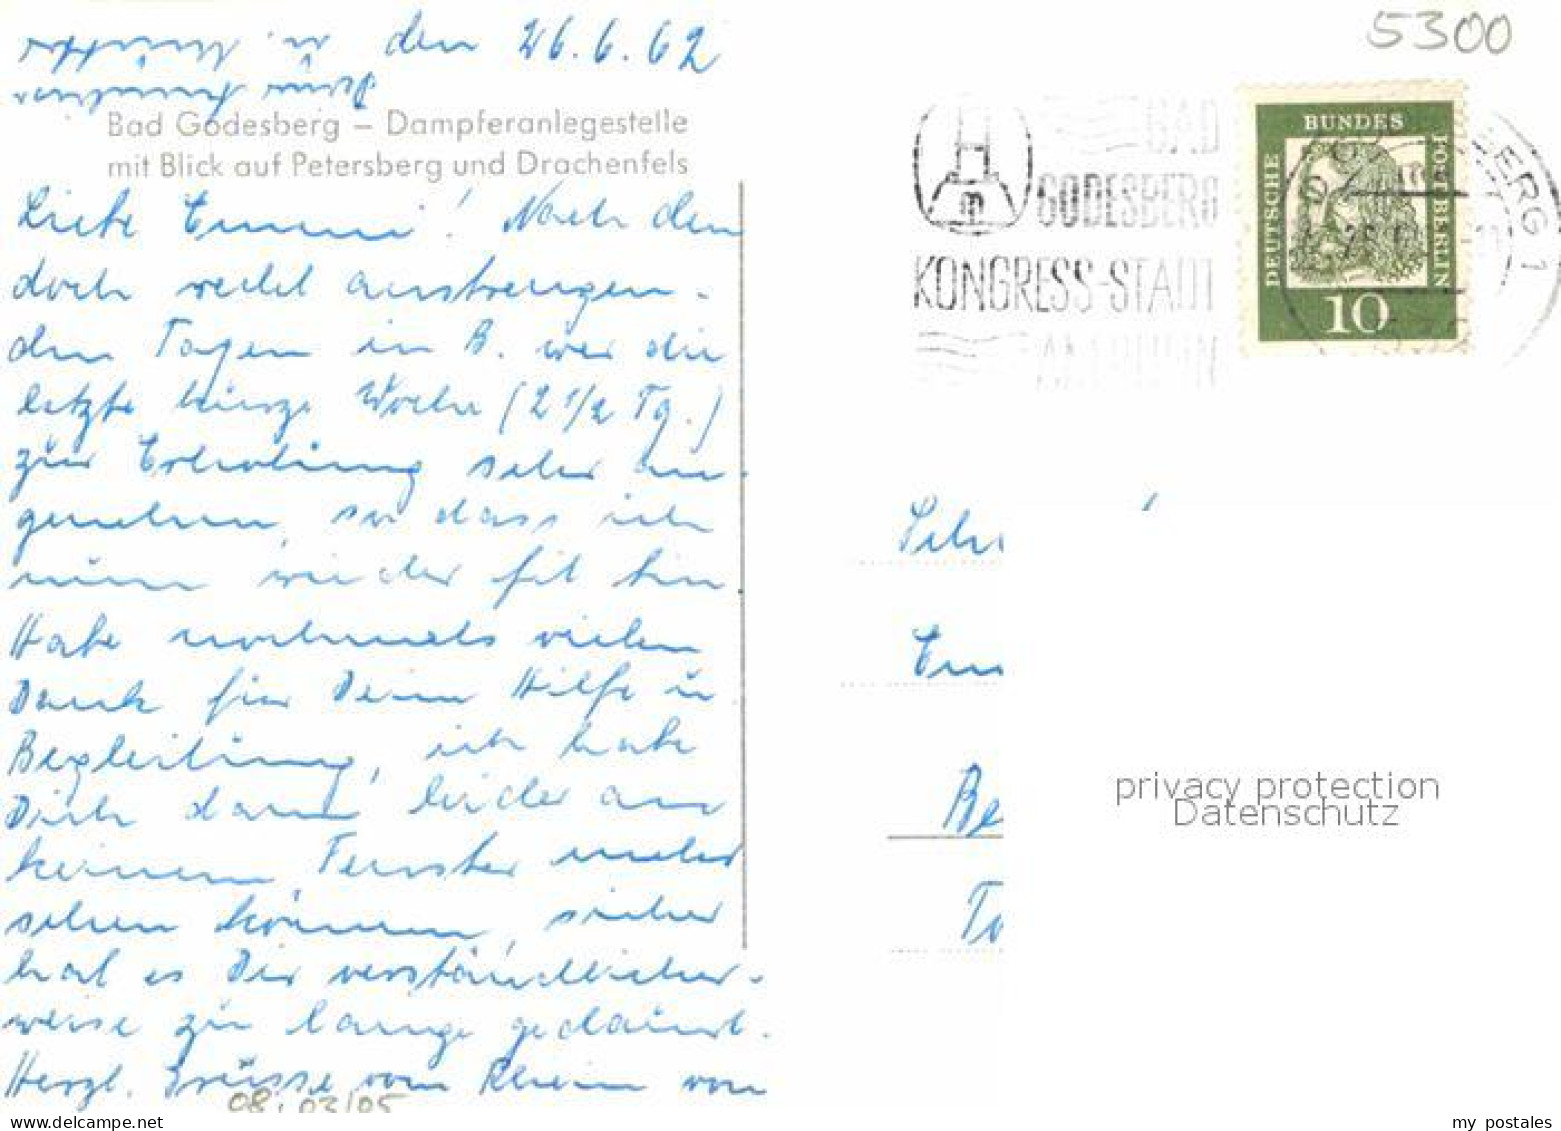 5300
den 26.6.62
Bad Godesberg – Dampferanlegestelle
mit Blick auf Petersberg und Drachenfels
Liebe Emmi! Nach den
doch recht anstrengen-
den Tagen in B. war die
letzte kurze Woche (2 1/2 Tg.)
zur Erholung sehr an-
genehm, so dass ich
nun wieder fit bin
Habe nochmals vielen
Dank für Deine Hilfe u.
Begleitung, ich habe
Dich dann leider an
keinem Fenster mehr
sehen können, sicher
hat es Dir verständlicher-
weise zu lange gedauert.
Herzl. Grüsse vom Rhein von
08.03/05
BAD
GODESBERG
KONGRESS-STADT
AM RHEIN
DEUTSCHE
BUNDES
POST BERLIN
10
privacy protection
Datenschutz
my postales